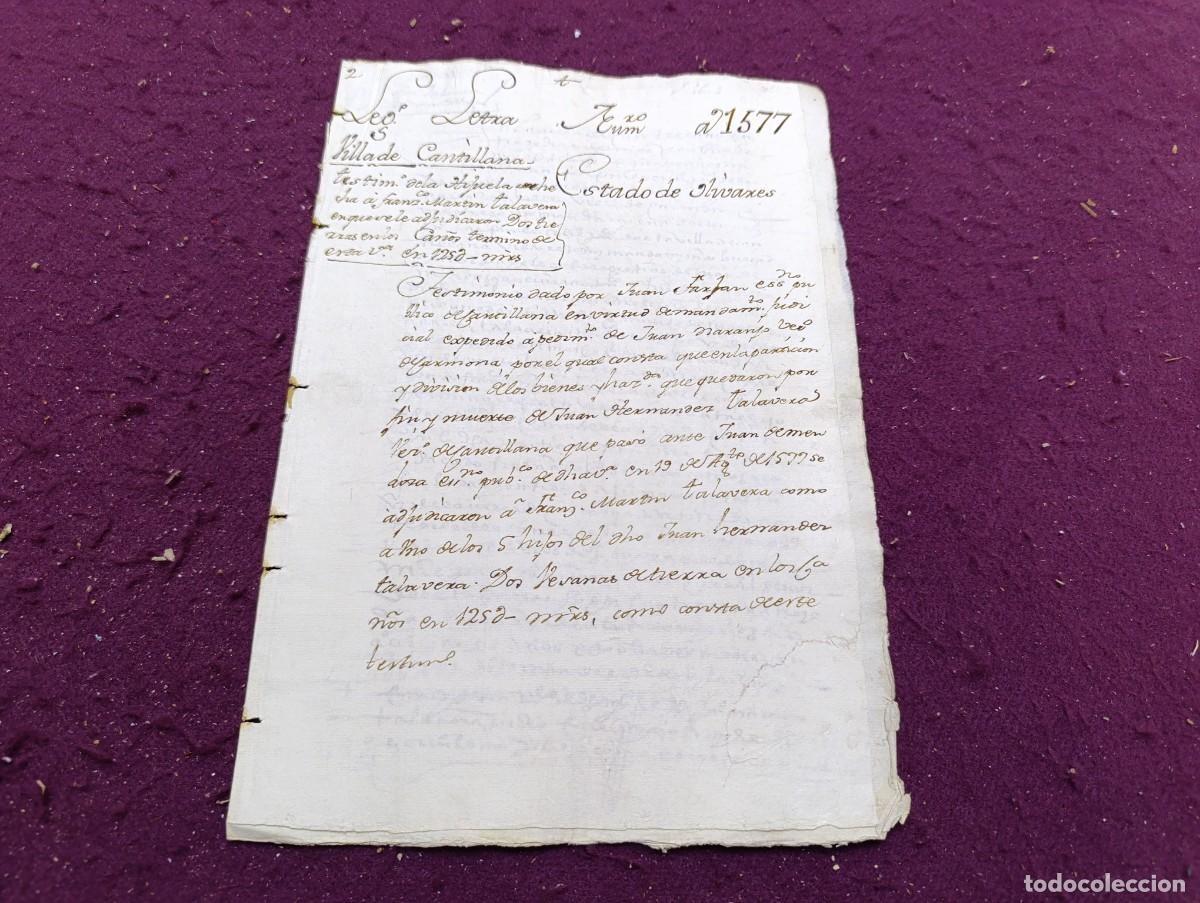 2
Leg.º Letra Num.ro aº 1577
Villa de Cantillana
testim.º de la Hijuela hecha
a Franz.co Martin talavera
en que se le adjudicaron Dos tie
rras en los Caños termino de
esta v.a en 125d mrs
Estado de Olivares
Testimonio dado por Juan Farfan ess.no pu
blico de Cantillana en virtud de mandam.to judi
cial expedido a pedim.to de Juan Naranjo vez.º
de Carmona por el qual consta que en la particion
y division de los bienes y haz.da que quedaron por
fin y muerte de Juan Hernandez Talavera
vez.º de Cantillana que pasó ante Juan de men
doza ess.no pub.co de dha v.a en 19 de Ag.to de 1577 se
adjudicaron a Franz.co Martin talavera como
a uno de los 5 hijos del dho Juan hernandez
talavera. Dos vesanas de tierra en los Ca
ños en 125d mrs, como consta de este
testim.º
todocoleccion